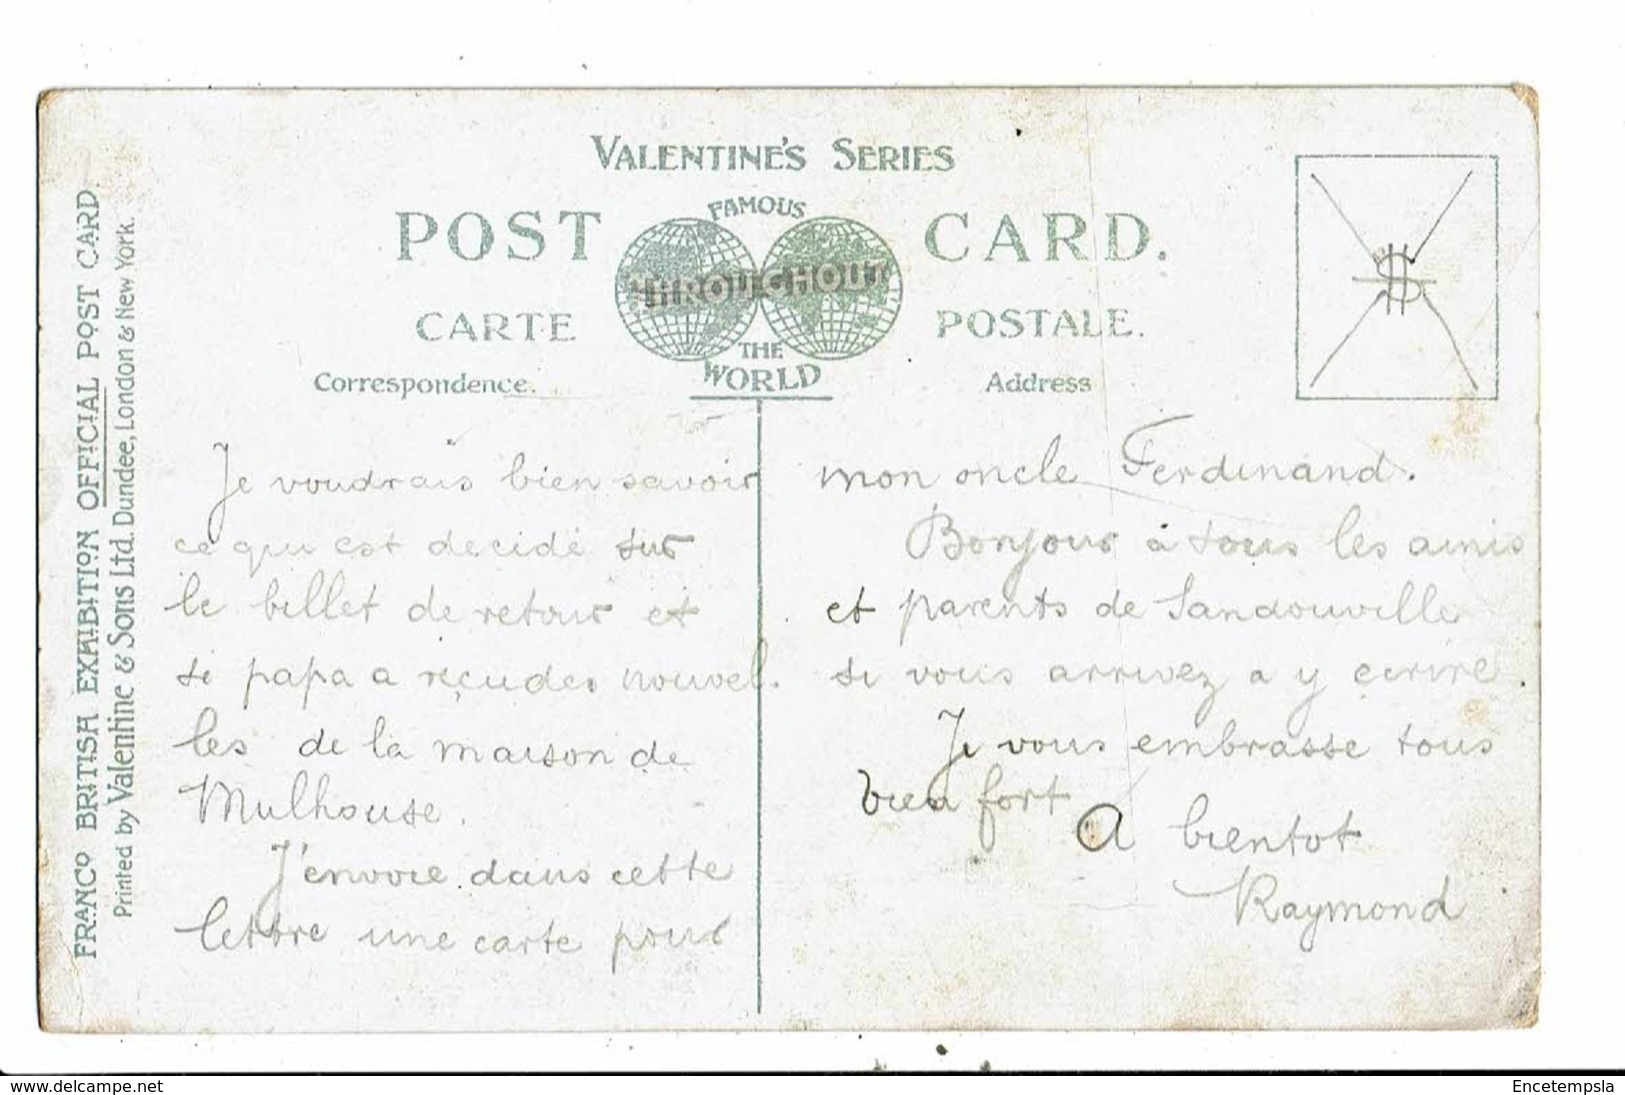 VALENTINE'S SERIES
POST CARD.
FAMOUS
THROUGHOUT
THE
WORLD
CARTE POSTALE.
Correspondence.
Address
FRANCO BRITISH EXHIBITION OFFICIAL POST CARD.
Printed by Valentine & Sons Ltd. Dundee, London & New York.
$
Je voudrais bien savoir
ce qui est decidé sur
le billet de retour et
si papa a reçu des nouvel.
les de la maison de
Mulhouse.
J'envoie dans cette
lettre une carte pour
mon oncle Ferdinand.
Bonjour à tous les amis
et parents de Sandouville
si vous arrivez a y ecrire.
Je vous embrasse tous
bien fort
A bientot
Raymond
www.delcampe.net
Encetempsla